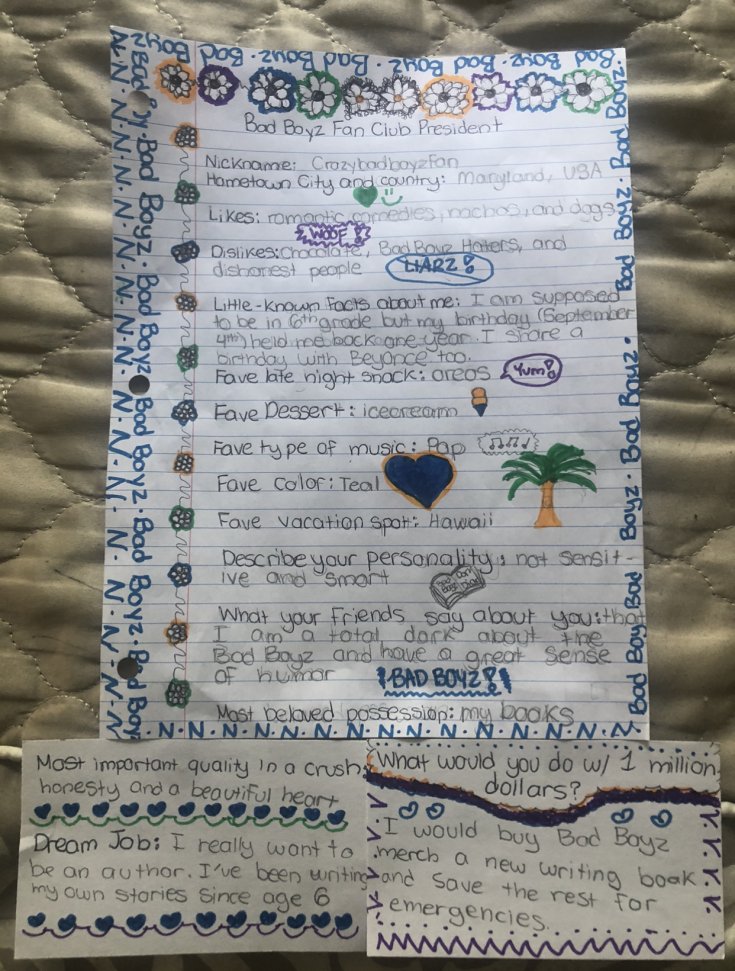 Bad Boyz · Bad Boyz · Bad Boyz · Bad Boyz · Bad
Bad Boyz Fan Club President
Nickname: Crazybadboyzfan
Hometown City and country: Maryland, USA
Likes: romantic comedies, nachos, and dogs
WOOF!
Dislikes: Chocolate, Bad Boyz Haters, and
dishonest people
LIARZ!
Little-known Facts about me: I am supposed
to be in 6th grade but my birthday (September
4th) held me back one year. I share a
birthday with Beyonce too.
Fave late night snack: oreos
Yum!
Fave Dessert: icecream
Fave type of music: Pop
Fave color: Teal
Fave vacation spot: Hawaii
Describe your personality: not sensit-
ive and smart
What your Friends say about you: that
I am a total dork about the
Bad Boyz and have a great sense
of humor
BAD BOYZ!
Most beloved possession: my books
N · N · N · N · N · N · N · N · N · N · N · N · N
Bad Boyz · Bad Boyz · Bad Boyz · Bad Boyz · Bad Boy
Bad Boyz · Bad Boyz · Bad Boyz · Bad Boyz
Most important quality in a crush:
honesty and a beautiful heart
Dream Job: I really want to
be an author. I've been writing
my own stories since age 6
What would you do w/ 1 million
dollars?
I would buy Bad Boyz
merch a new writing book
and save the rest for
emergencies.